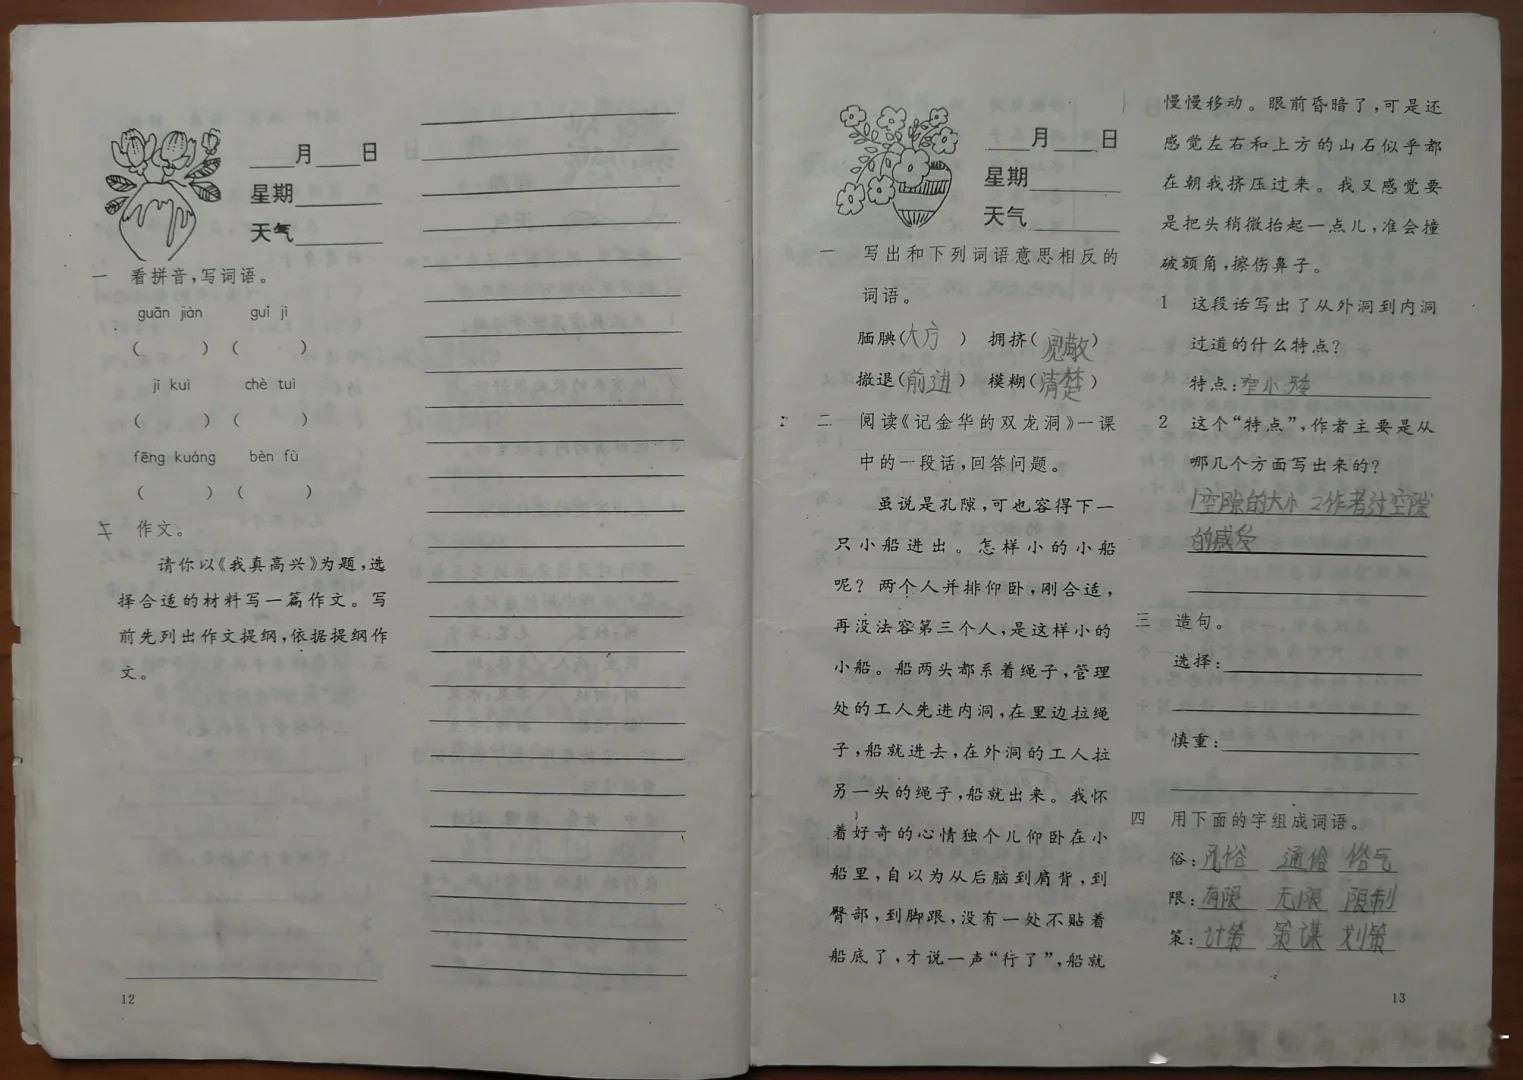 ___月___日
星期______
天气______
一 看拼音,写词语。
guān jiàn guǐ jì
( ) ( )
jī kuì chè tuì
( ) ( )
fēng kuáng bèn fù
( ) ( )
作文。
请你以《我真高兴》为题,选
择合适的材料写一篇作文。写
前先列出作文提纲,依据提纲作
文。
12
___月___日
星期______
天气______
一 写出和下列词语意思相反的
词语。
腼腆(大方) 拥挤(宽敞)
撤退(前进) 模糊(清楚)
二 阅读《记金华的双龙洞》一课
中的一段话,回答问题。
虽说是孔隙,可也容得下一
只小船进出。怎样小的小船
呢?两个人并排仰卧,刚合适,
再没法容第三个人,是这样小的
小船。船两头都系着绳子,管理
处的工人先进内洞,在里边拉绳
子,船就进去,在外洞的工人拉
另一头的绳子,船就出来。我怀
着好奇的心情独个儿仰卧在小
船里,自以为从后脑到肩背,到
臀部,到脚跟,没有一处不贴着
船底了,才说一声“行了”,船就
慢慢移动。眼前昏暗了,可是还
感觉左右和上方的山石似乎都
在朝我挤压过来。我又感觉要
是把头稍微抬起一点儿,准会撞
破额角,擦伤鼻子。
1 这段话写出了从外洞到内洞
过道的什么特点?
特点:窄小 矮
2 这个“特点”,作者主要是从
哪几个方面写出来的?
1空隙的大小 2作者过空隙
的感受
三 造句。
选择:
慎重:
四 用下面的字组成词语。
俗:风俗 通俗 俗气
限:有限 无限 限制
策:计策 策谋 划策
13